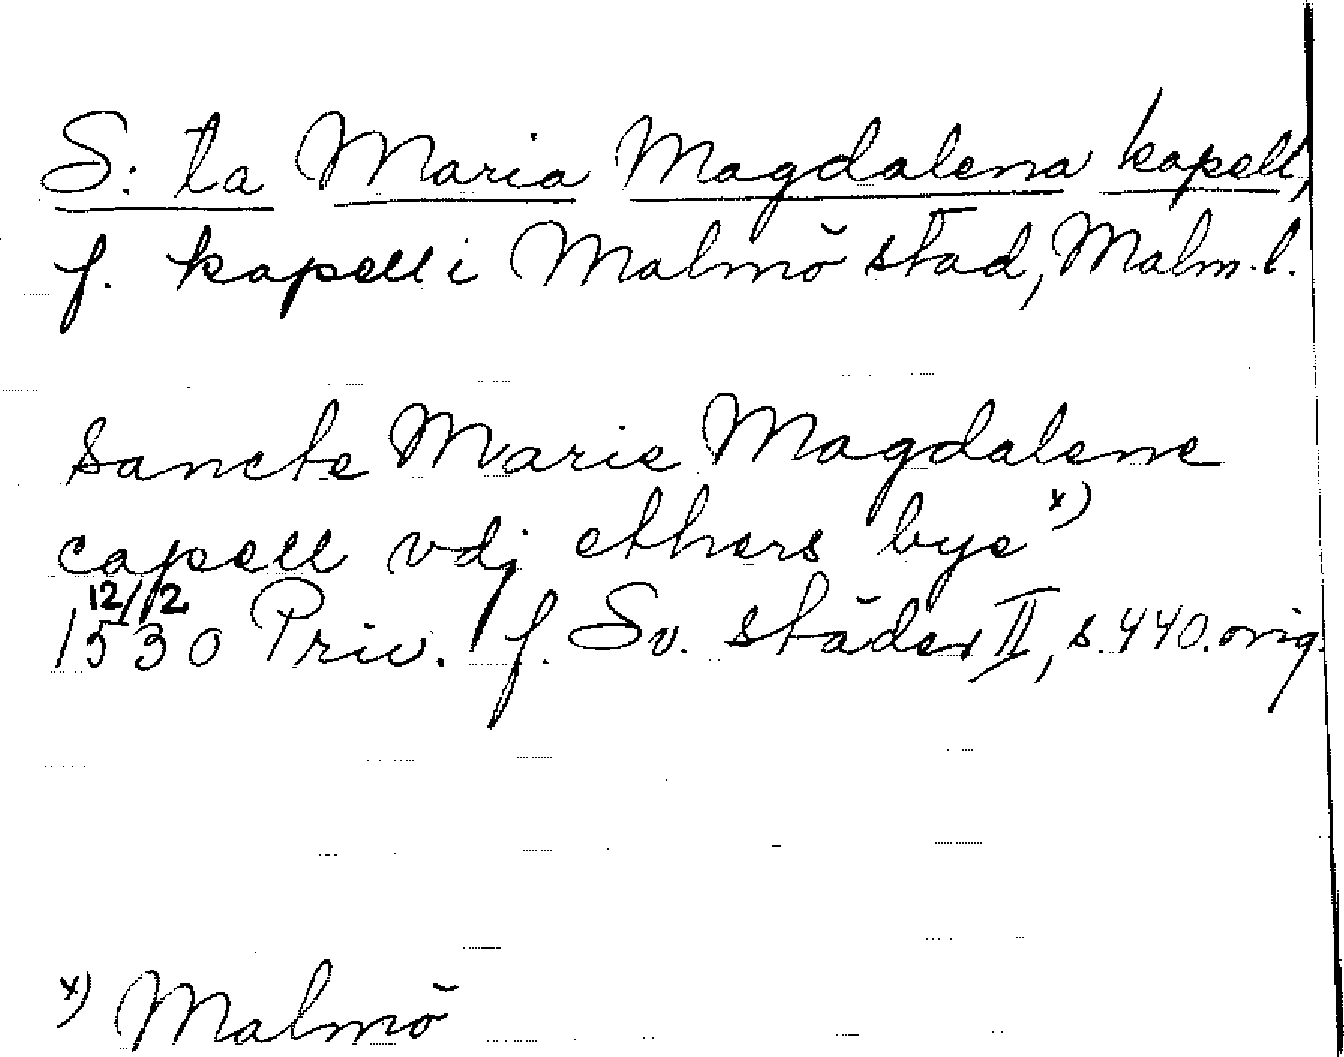 S:ta Maria Magdalena kapell,
f. kapell i Malmö stad, Malm. l.
Sancte Marie Magdalene
capell vdj ethers bye x)
12/12
1530 Priv. f. Sv. städer II, s. 440. orig.
x) Malmö